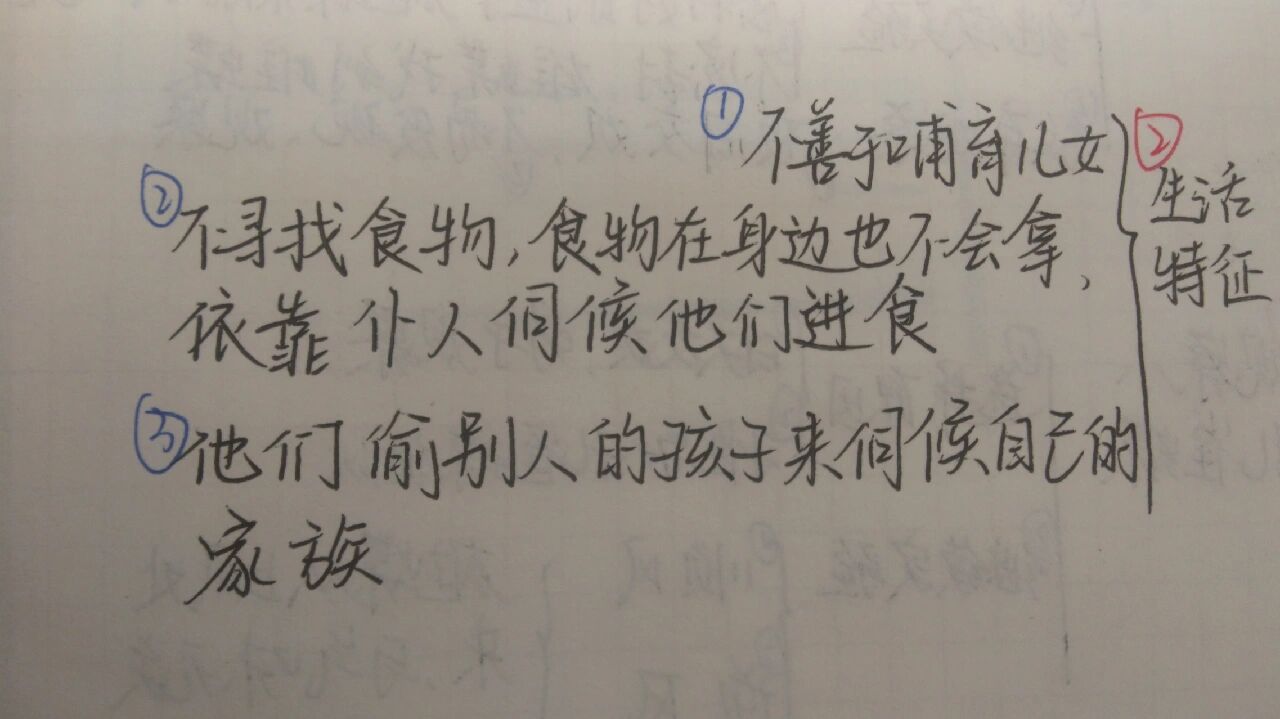 ① 不善于哺育儿女
② 不寻找食物,食物在身边也不会拿,
依靠仆人伺候他们进食
③ 他们偷别人的孩子来伺候自己的
家族
②
生活
特征